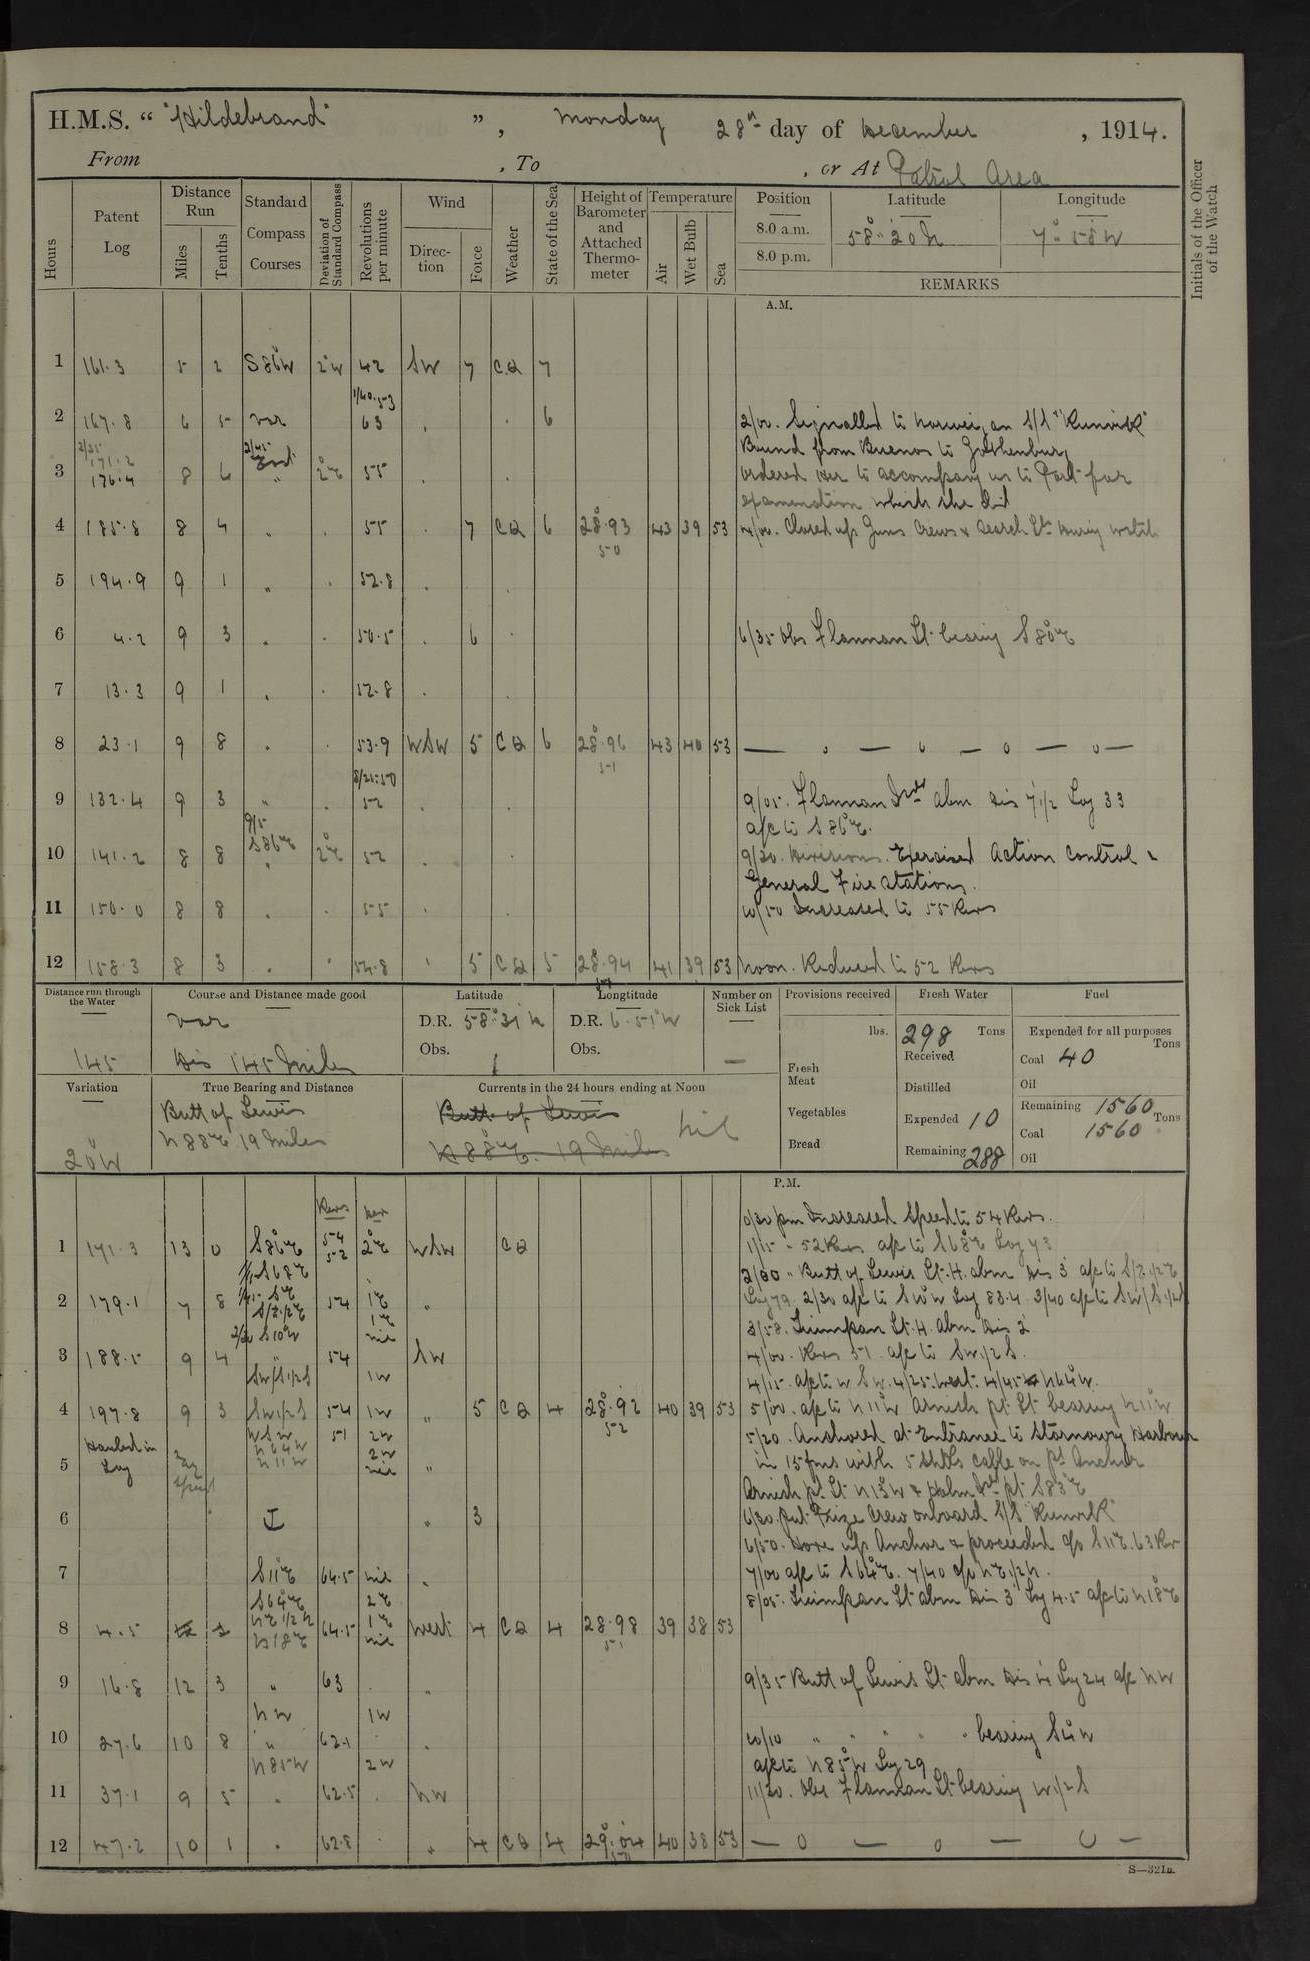 H.M.S. " "Hildebrand" ", Monday 28th day of December, 1914.
From , To , or At Patrol Area
Hours Patent Log Distance Run Miles Tenths Standard Compass Courses Deviation of Standard Compass Revolutions per minute Wind Direction Force Weather State of the Sea Height of Barometer and Attached Thermometer Temperature Air Wet Bulb Sea Position Latitude Longitude Initials of the Officer of the Watch
8.0 a.m. 58° 20 N 7° 58 W
8.0 p.m.
REMARKS
A.M.
1 161.3 5 2 S86°W 2°W 42 SW 7 C.Q 7
1/40.53
2 167.8 6 5 var 63 . . 6 2/00. Signalled to Norweigan S/S "Runvik"
Bound from Buenos to Gothenburg
2/25 171.2 2/45 East
3 176.4 8 6 " 2°E 55 . . ordered her to accompany us to Port for
examenation which she did
4 185.8 8 4 " . 55 . 7 CQ 6 28.93 50 43 39 53 4/00. Closed up Guns Crews & Search Lt during watch
5 194.9 9 1 " . 52.8 . .
6 4.2 9 3 . . 50.5 . 6 . 6/35 Obs Flannan Lt bearing S80°E
7 13.3 9 1 . . 52.8 . .
8 23.1 9 8 . . 53.9 WSW 5 CQ 6 28.96 51 43 40 53 — " — " — " — " —
8/25:50
9 132.4 9 3 " . 52 . . 9/05. Flannan Isds Abm Dis 7 1/2 Log 33
a/c to S86°E.
9/5
10 141.2 8 8 S86°E 2°E 52 . . 9/30. Divisions. Exercised Action Control &
General Fire Stations.
11 150.0 8 8 . . 55 . . 10/50 Increased to 55 Revs
12 158.3 8 3 . . 54.8 . 5 CQ 5 28.94 41 39 53 Noon. Reduced to 52 Revs
Distance run through the Water 145
Course and Distance made good var Dis 145 Miles
Latitude D.R. 58° 31 N Obs.
Longtitude D.R. 6.51°W Obs.
Number on Sick List —
Provisions received lbs. Fresh Meat Vegetables Bread
Fresh Water 298 Tons Received Distilled Expended 10 Remaining 288
Fuel Expended for all purposes Tons Coal 40 Oil Remaining 1560 Tons Coal 1560 Oil
Variation 20°W
True Bearing and Distance Butt of Lewis N88°E 19 Miles
Currents in the 24 hours ending at Noon Butt of Lewis N88°E. 19 Miles nil
P.M.
Revs Dev
0/30 pm Increased Speed to 54 Revs.
1 171.3 13 0 S86°E 54 52 2°E WSW CQ 1/15 - 52 Revs a/c to S68°E Log 73
S68°E 2/00 " Butt of Lewis Lt. H. abm Dis 3' a/c to S/E 1/2 E
2 179.1 7 8 S/E 1/2 E 54 1°E " Log 79. 2/30 a/c to S10°W Log 83.4 3/40 a/c to SW/S 1/2 S
S10°W nil 3/58. Tiumpan Lt. H. Abm Dis 2'
3 188.5 9 4 " 54 SW 4/00. Revs 51. a/c to SW 1/2 S.
SW/S 1/2 S 1W 4/15. a/c to WSW. 4/25. West. 4/45 N64°W.
4 197.8 9 3 SW 1/2 S 54 1W " 5 CQ 4 28.92 52 40 39 53 5/00. a/c to N11°W Arnish pt Lt bearing N11°W
WSW 51 2W 5/20. Anchored at Entrance to Stornowy Harbour
5 Hauled in Log N64W N11W 2W nil " in 15 fms with 5 shkls cable on Pt Anchor
Arnish pt. Lt N13°W & Holm Isd pt S83°E
6 " 3 6/30. Put Prize Crew onboard S/S "Runvik"
6/50. Hove up Anchor & proceeded c/o S11°E. 63 Rev
7 S11°E 64.5 nil " 7/00 a/c to S64°E. 7/40 c/o NE 1/2 N.
S64°E 2E 8/05. Tiumpan Lt abm Dis 3' Log 4.5 a/c to N18°E
8 4.5 NE 1/2 N N18°E 64.5 1°E nil West 4 CQ 4 28.98 51 39 38 53
9 16.8 12 3 " 63 . " 9/35 Butt of Lewis Lt abm Log 24 a/c NW
NW 1W
10 27.6 10 8 " 62.1 . . 10/10 " " " " bearing
N85W 2W a/c to N85°W Log 29
11 37.1 9 5 . 62.5 . NW 11/20. Obs Flannan Lt bearing W 1/2 S
12 47.2 10 1 . 62.8 . " 4 CQ 4 29.04 50 40 38 53 — 0 — 0 — 0 —
S—321a.